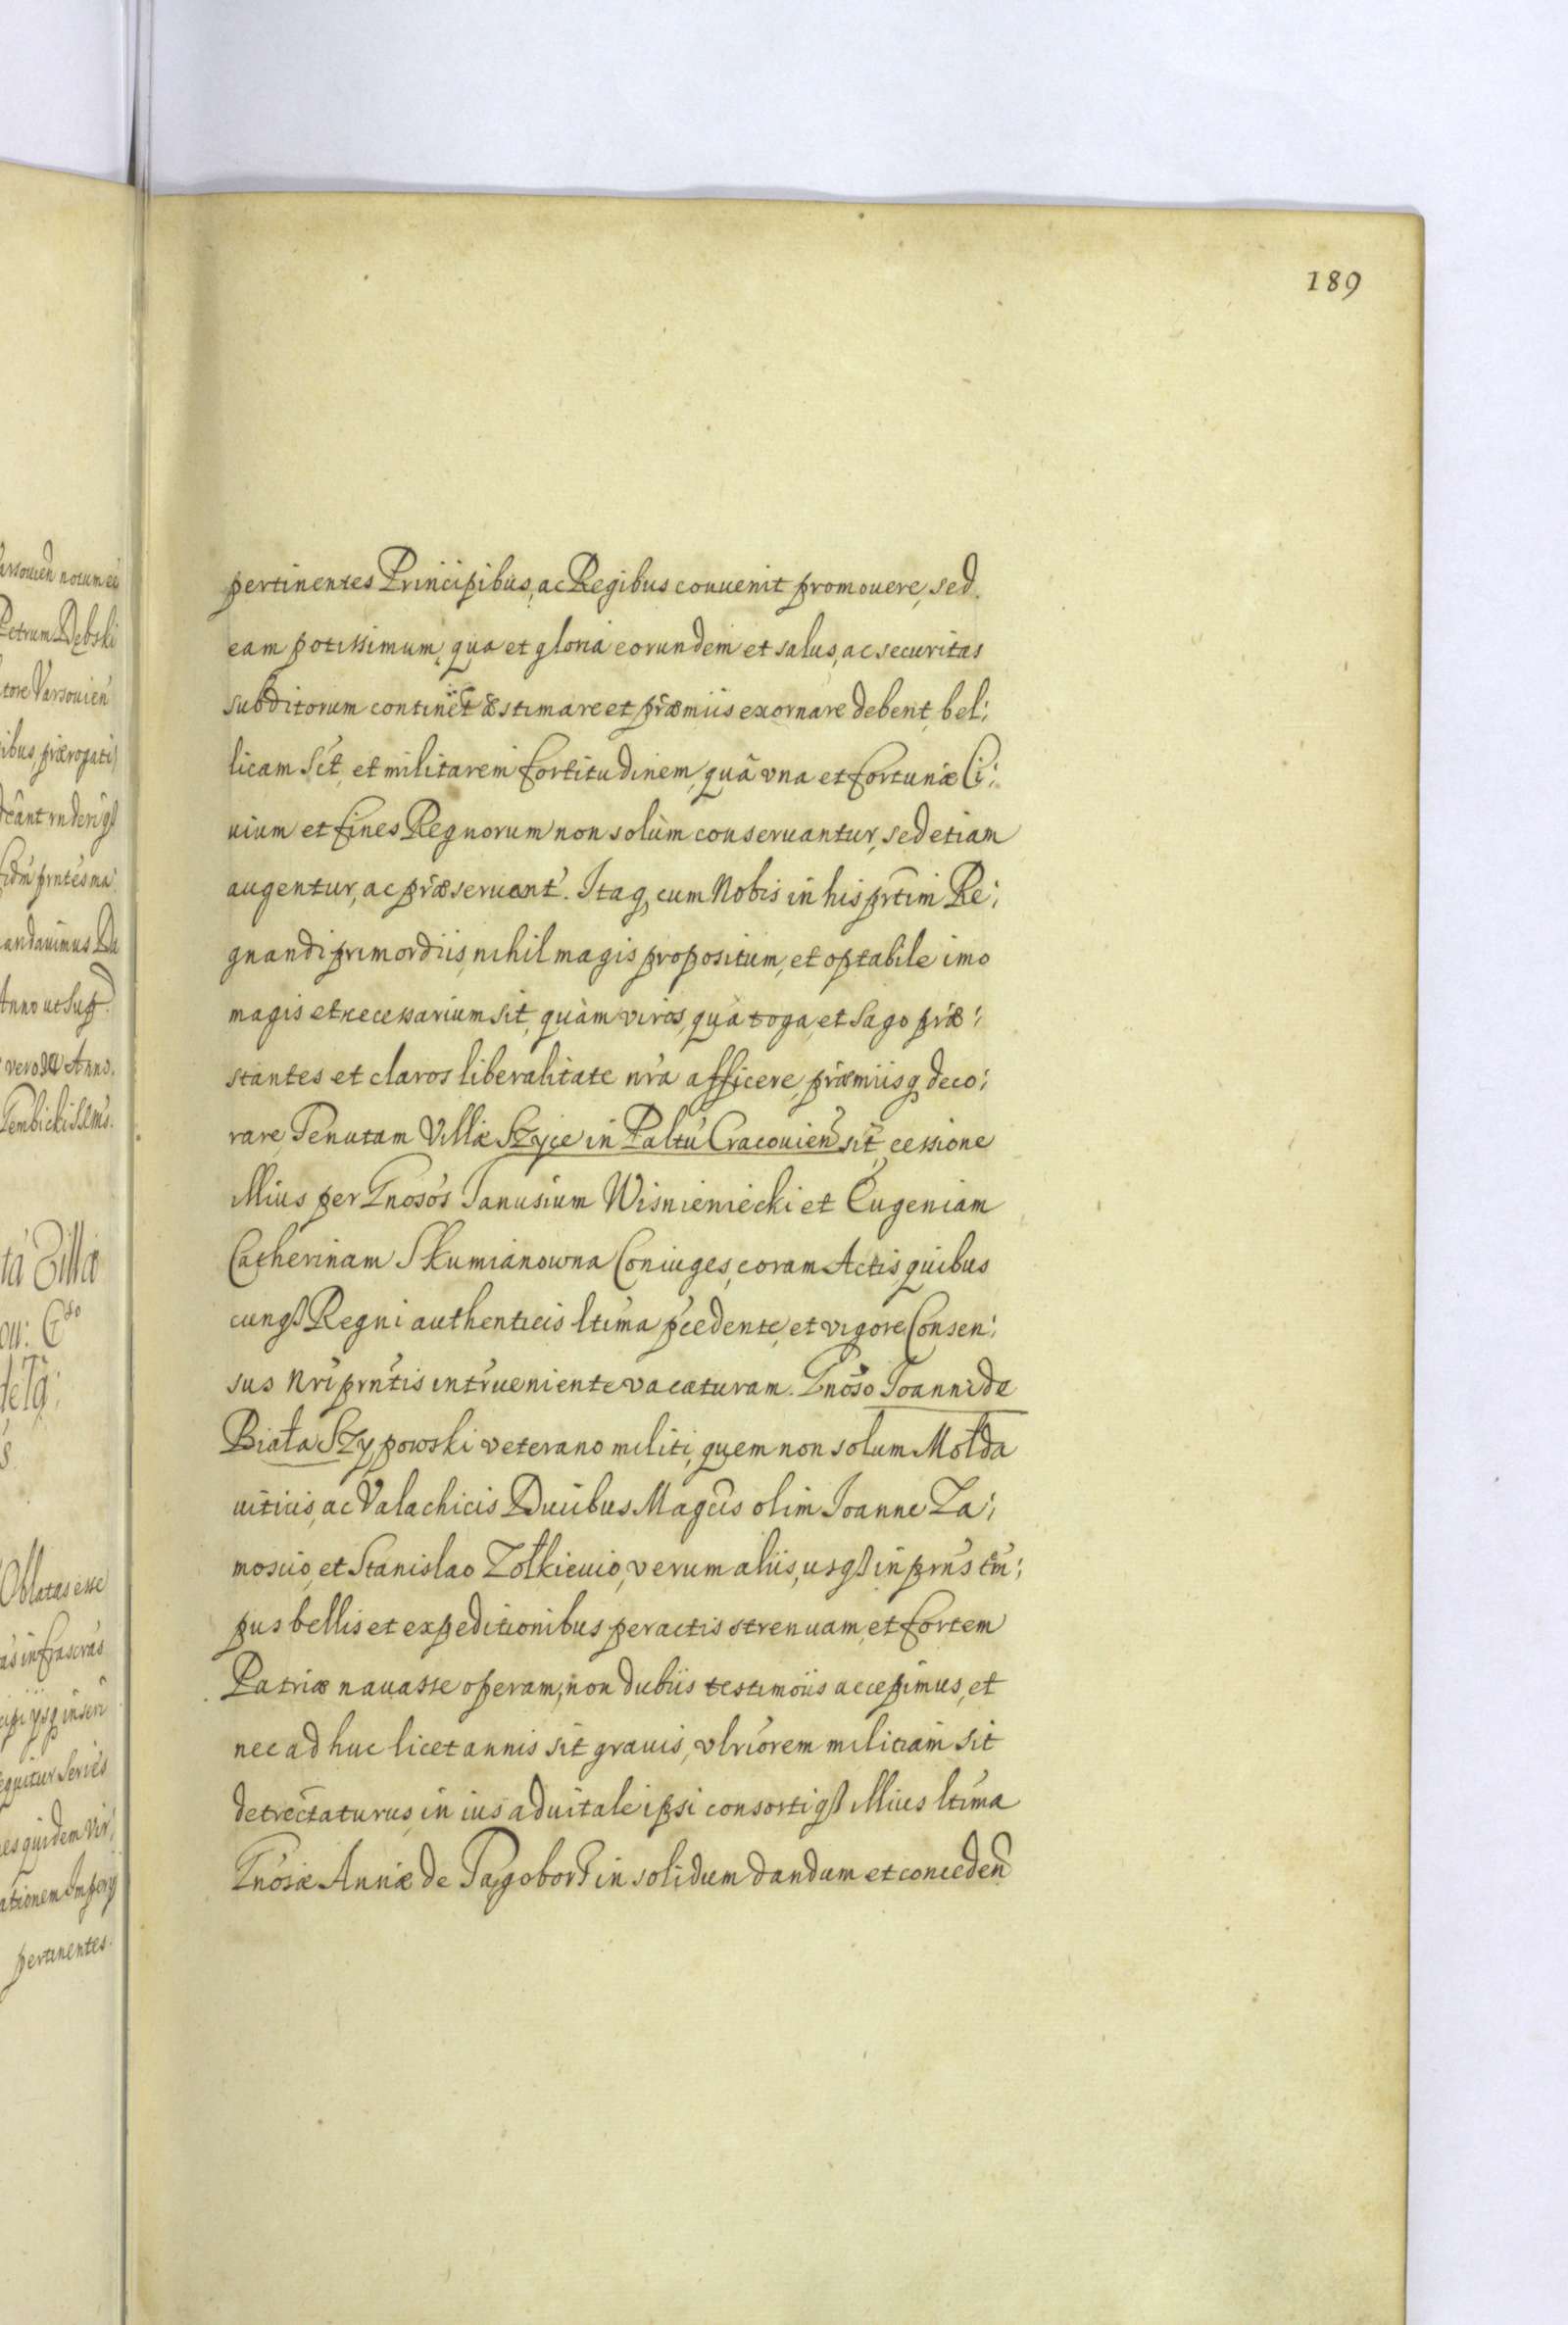 189
pertinentes Principibus, ac Regibus conuenit promouere, sed
eam potissimum, qua et gloria eorundem et salus, ac securitas
subditorum continet æstimare et præmiis exornare debent, bel:
licam Sct, et militarem fortitudinem, quâ vna et fortunæ Ci:
uium et fines Regnorum non solùm conseruantur, sed etiam
augentur, ac præseruant. Itaq cum Nobis in his prtim Re:
gnandi primordiis, nihil magis propositum, et optabile imo
magis et necessarium sit, quàm viros, quà toga, et Sago præ:
stantes et claros liberalitate nra afficere, præmiisq deco:
rare, Tenutam Villæ Szyce in Paltu Cracouien sit, cessione
illius per Gnosos Janusium Wisnieniecki et Eugeniam
Catherinam Skumianowna Coniuges, coram Actis quibus
cunq Regni authenticis ltima pcedente, et vigore Consen:
sus Nri prntis intrueniente vacaturam. Gnoso Joanni de
Biała Szypowski veterano militi, quem non solum Mołda
uiticis, ac Valachicis Ducibus Magcis olim Joanne Za:
moscio, et Stanislao Zołkieuio, verum aliis, usq in prns tm:
pus bellis et expeditionibus peractis strenuam, et fortem
Patriæ nauasse operam, non dubiis testimoiis accepimus, et
nec ad huc licet annis sit grauis, vlriorem militiam sit
detrectaturus, in ius aduitale ipsi consortiq illius ltima
Gnosæ Annæ de in solidum dandam et conceden
arsouien notum ee
Petrum Dębski
tore Varsouien
ibus, prærogati
andauimus Da
Anno ut Sup
vero Anno.
Oblatas esse
as infrascras
equitur Series
es quidem Vir:
ationem Impery
pertinentes.